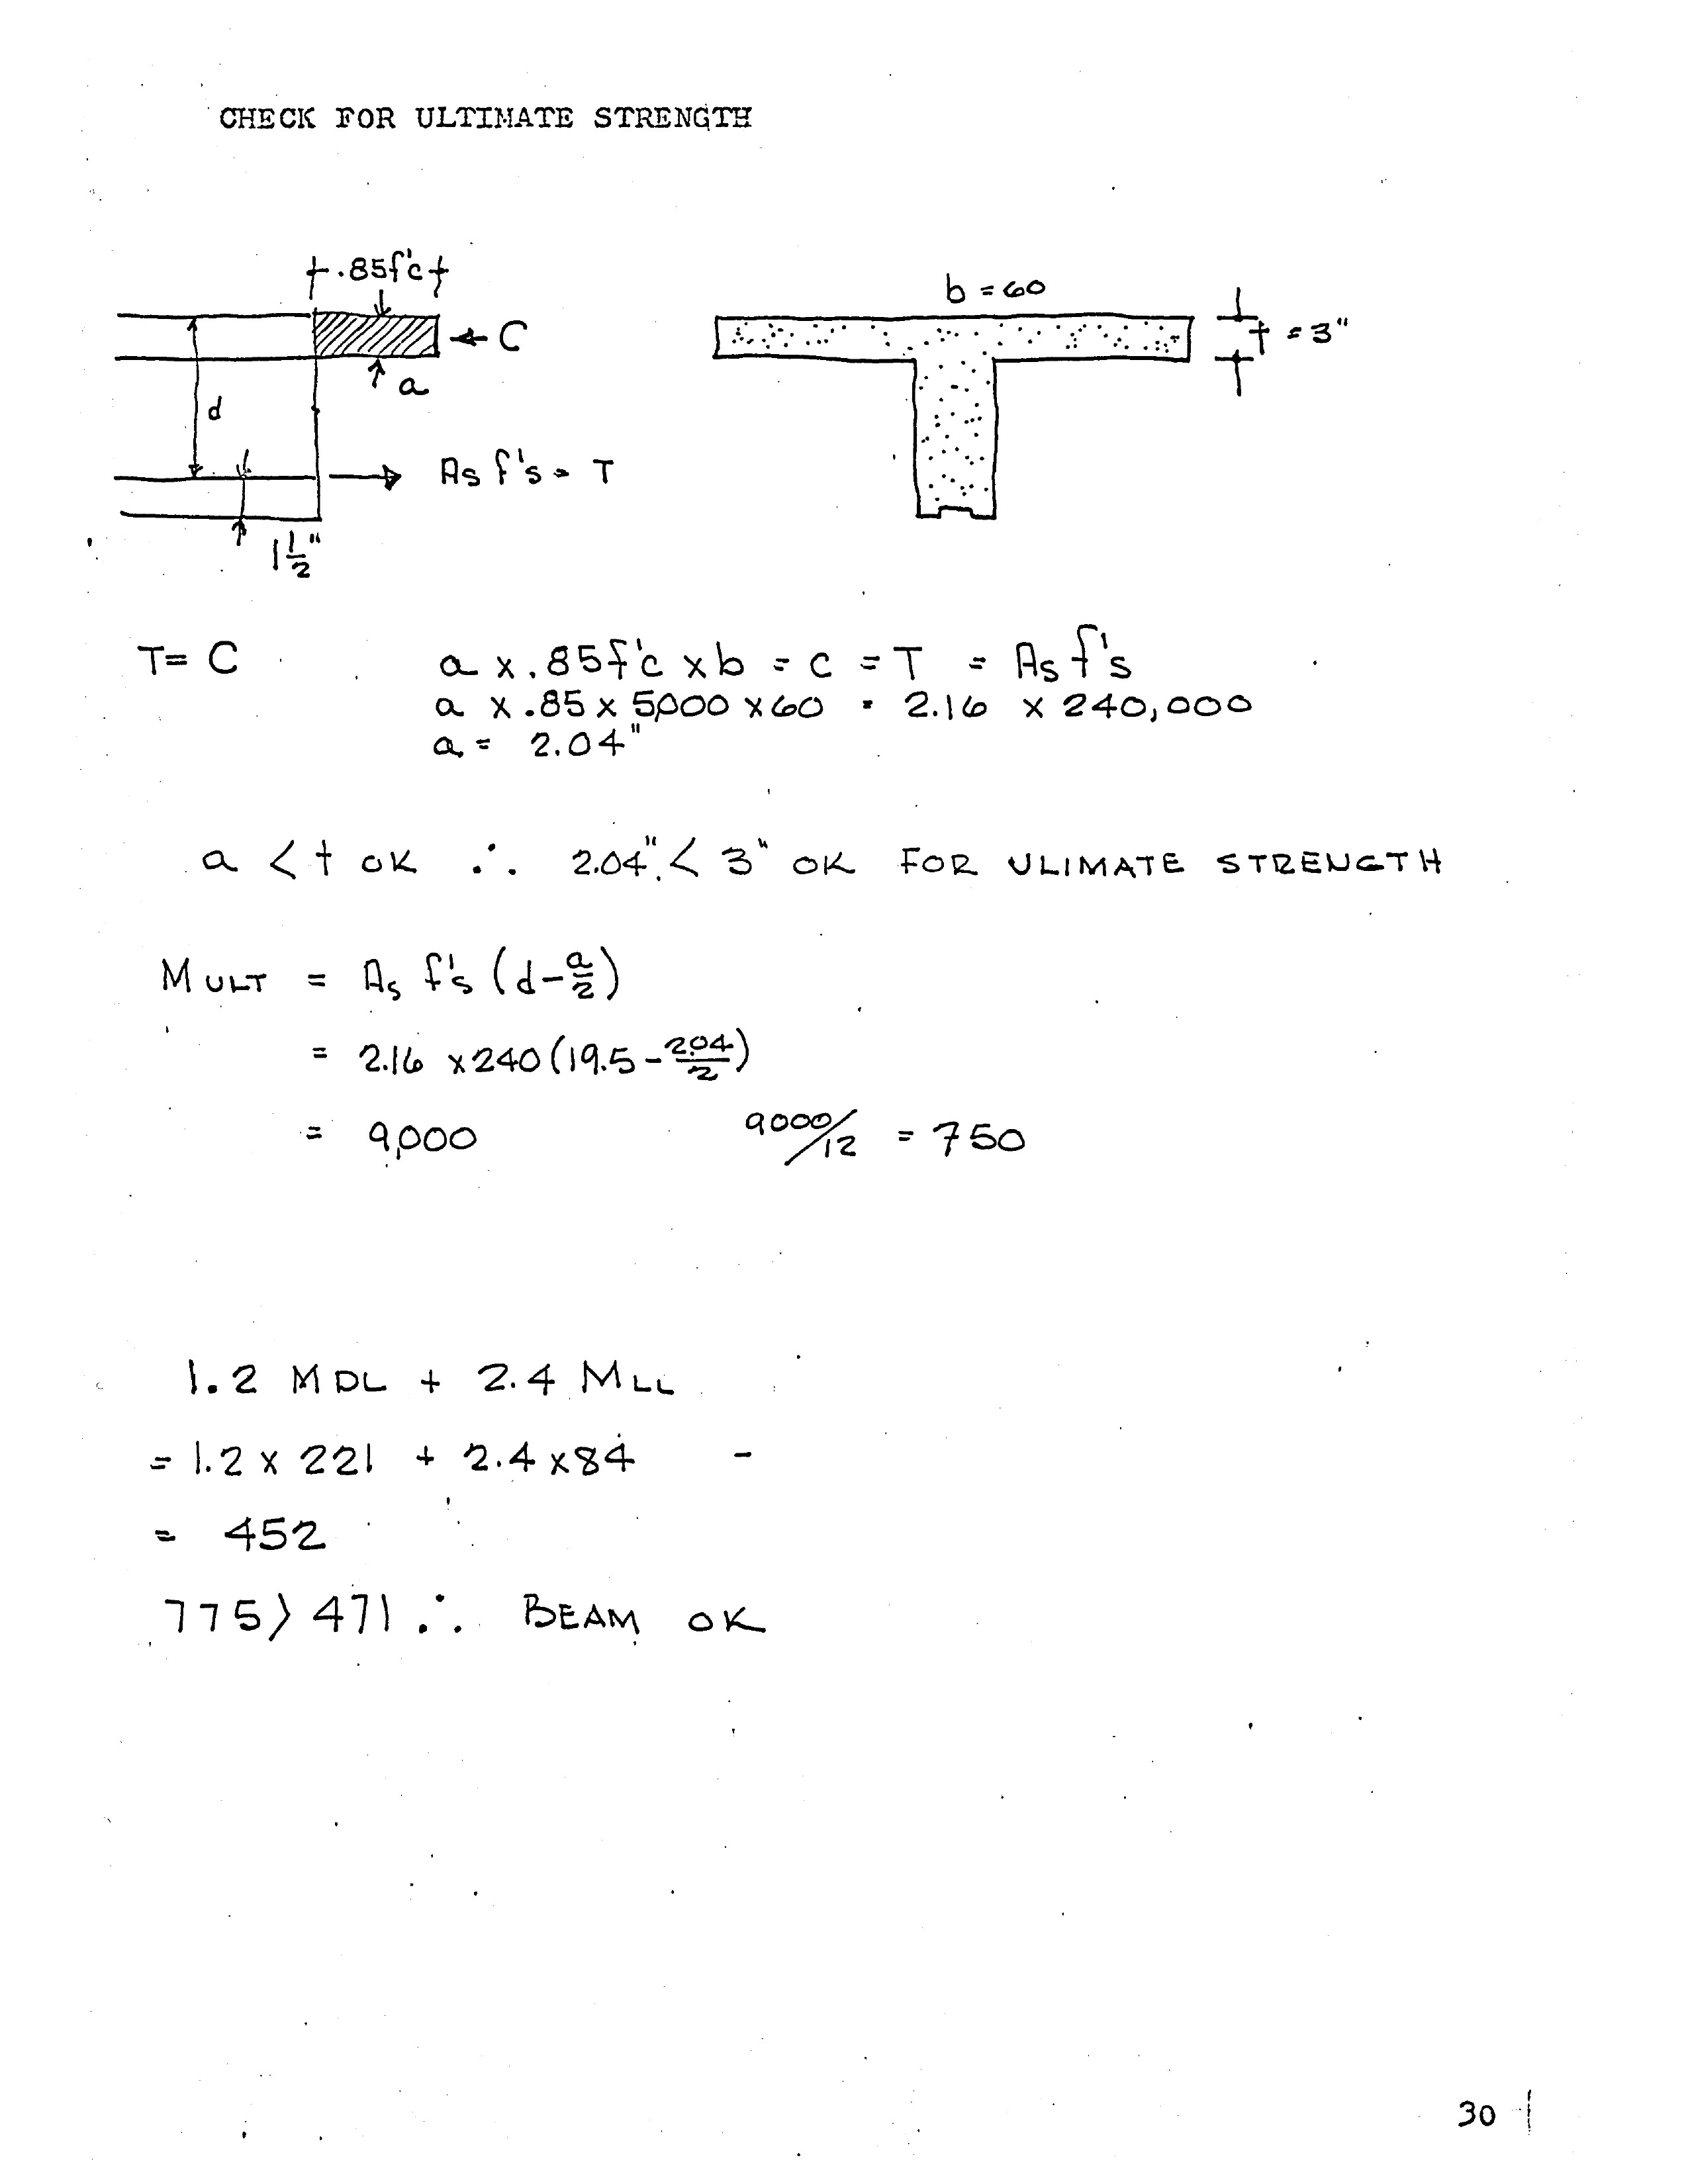 CHECK FOR ULTIMATE STRENGTH
.85f'c
b = 60
C
t = 3"
a
d
As f's = T
1 1/2"
T = C a x .85f'c x b = C = T = As f's
a x .85 x 5,000 x 60 = 2.16 x 240,000
a = 2.04"
a < t OK ∴ 2.04" < 3" OK FOR ULIMATE STRENGTH
M ULT = As f's (d - a/2)
= 2.16 x 240 (19.5 - 2.04/2)
= 9,000 9000/12 = 750
1.2 MDL + 2.4 MLL
= 1.2 x 221 + 2.4 x 84 -
= 452
775 > 471 ∴ BEAM OK
30